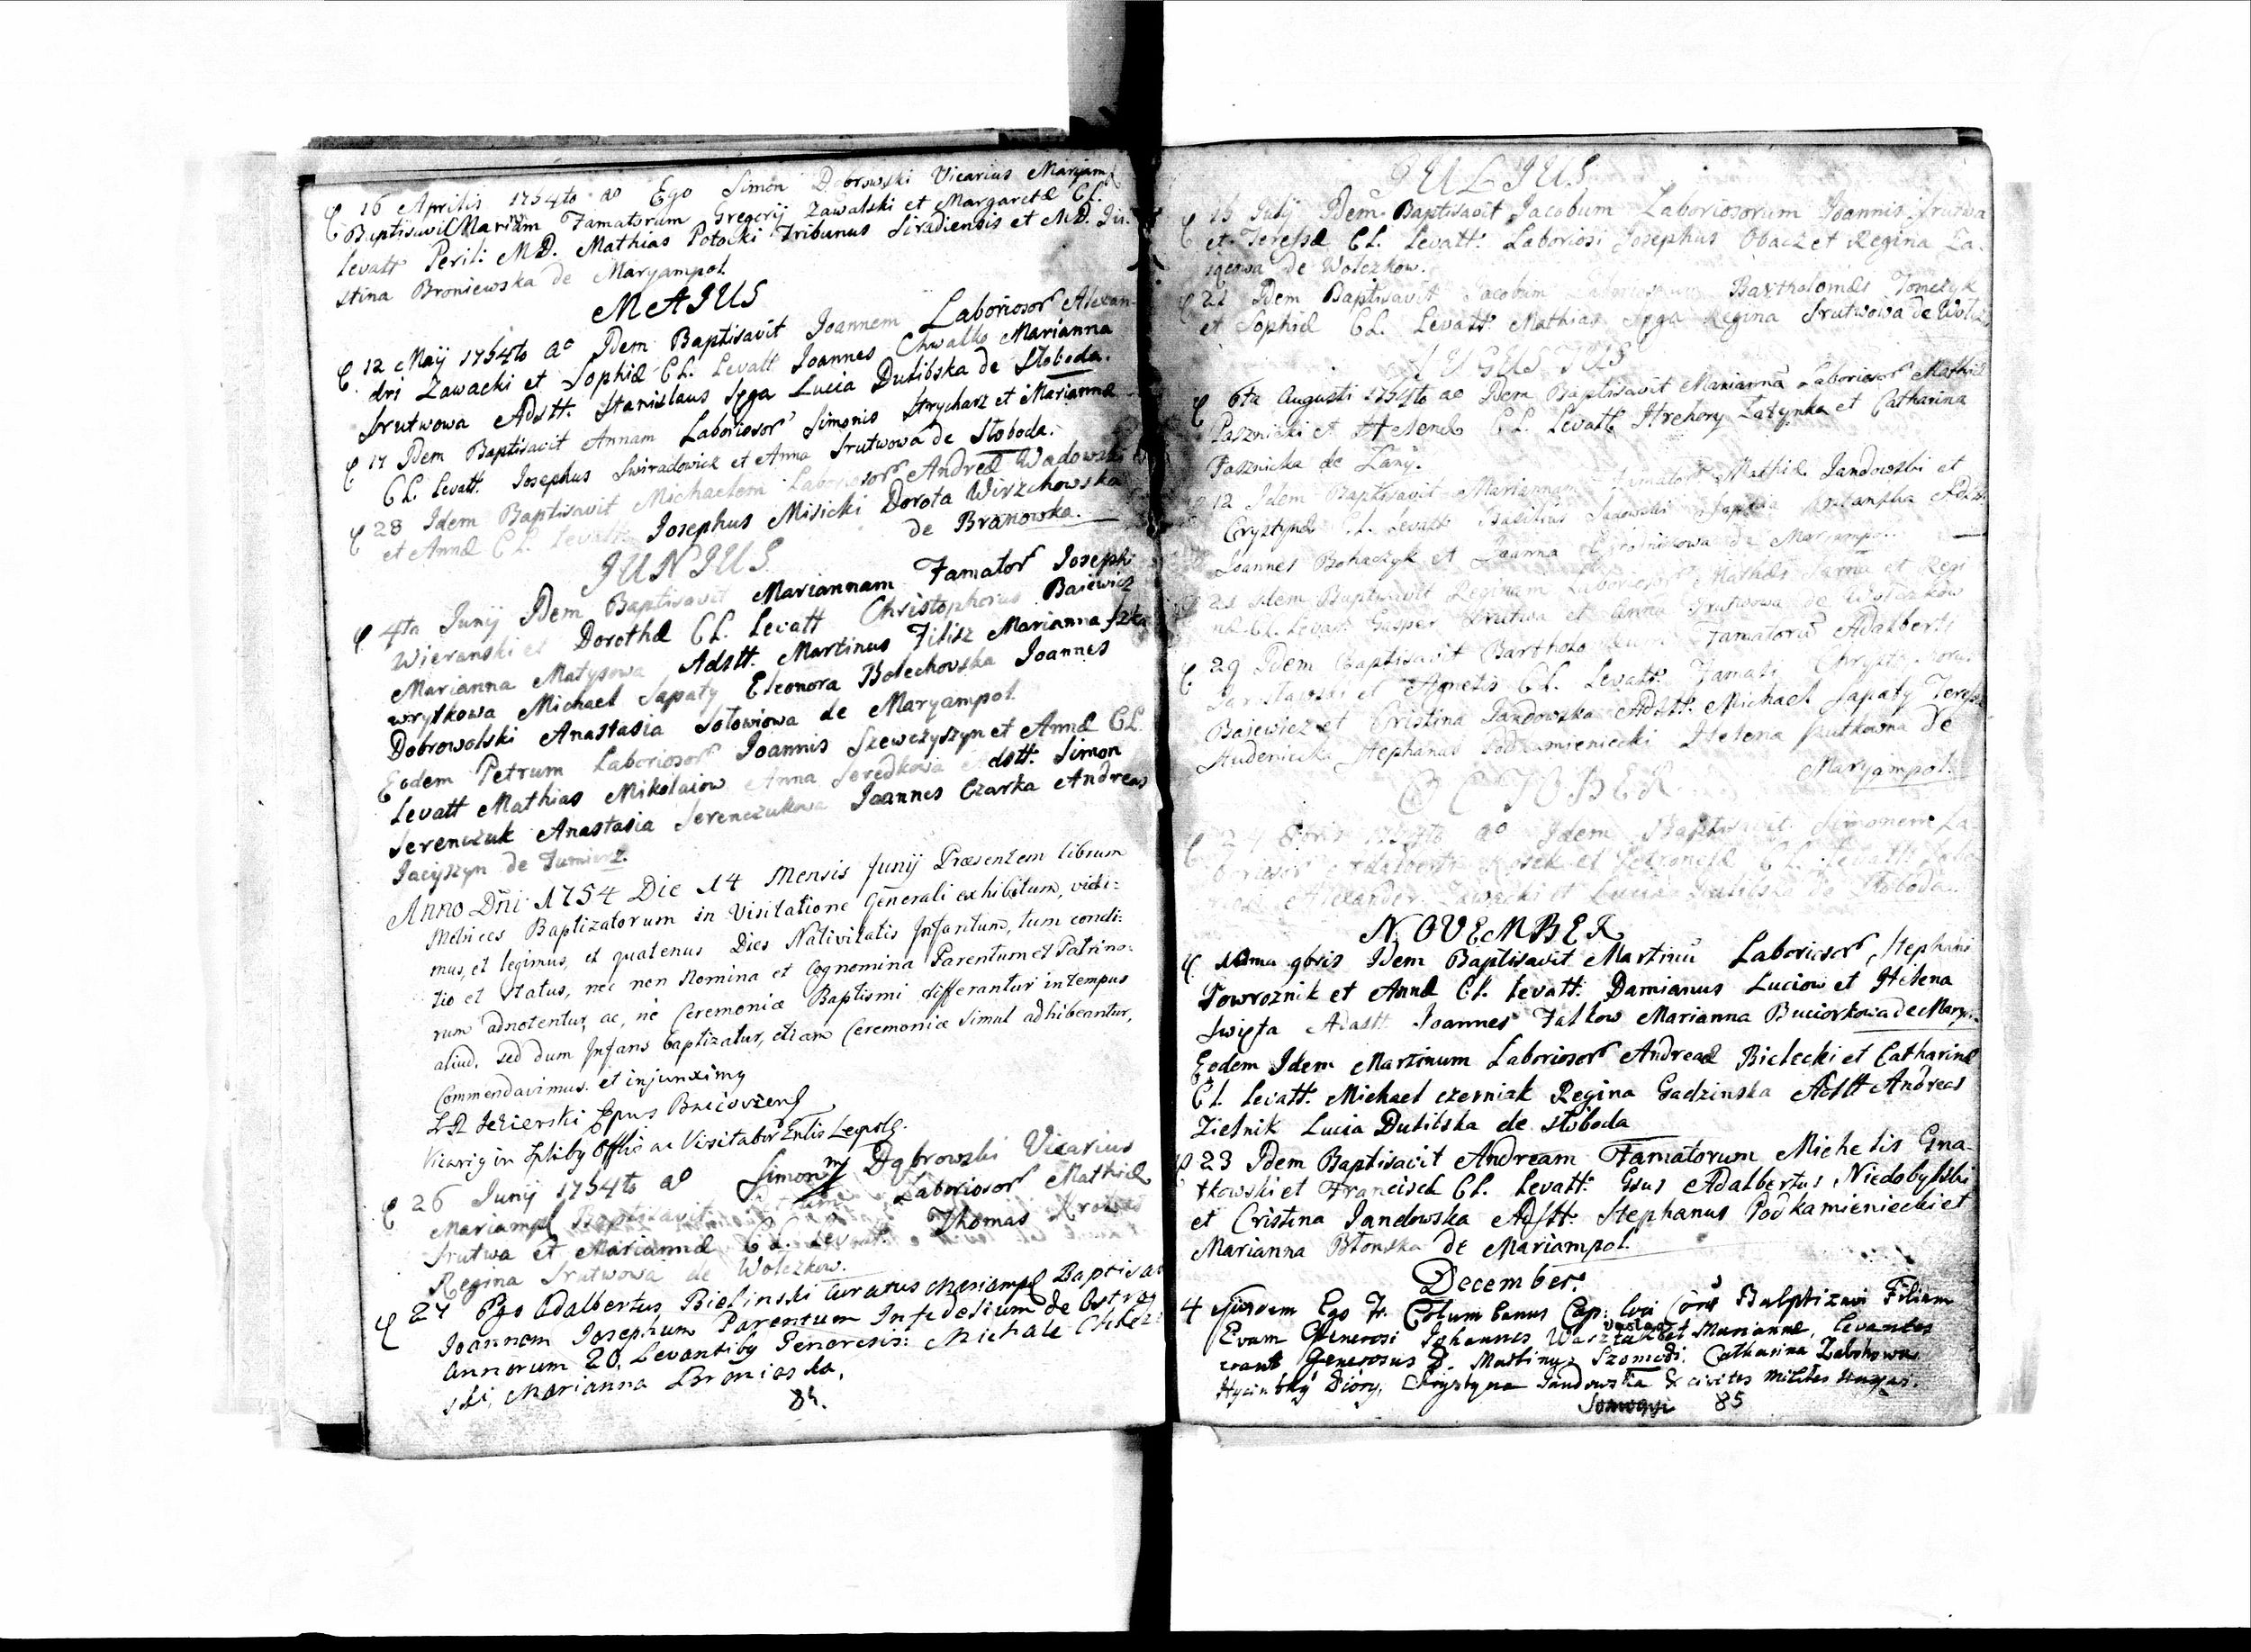 16 Aprilis 1754to ao Ego Simon Dobrowski Vicarius Maryamp
Baptisavit Mariam Famatorum Gregorij Zawalski et Margaretæ CL.
Levatt Perill: MD. Mathias Potocki Tribunus Siradiensis et MD. Iu-
stina Broniewska de Maryampol.
MAIUS
12 Maij 1754to ao Idem Baptisavit Joannem Laboriosor Alexan-
dri Zawacki et Sophiæ CL. Levatt Joannes Chwalko Marianna
Srutwowa Adstt. Stanislaus Spga Lucia Dulibska de Sloboda.
17 Idem Baptisavit Annam Laboriosor Simonis Strycharz et Mariannæ
CL. Levatt. Josephus Swiradowick et Anna Srutwowa de Sloboda.
28 Idem Baptisavit Michaelem Laboriosor Andreæ Wadowski
et Annæ CL. Levatt Josephus Misicki Dorota Wirzchowska
de Branowska.
JUNIUS
4ta Junij Idem Baptisavit Mariannam Famator Josephi
Wieranski et Dorothæ CL. Levatt Christophorus Baiewicz
Marianna Matysowa Adstt. Martinus Filisz Marianna Szka
wrytkowa Michael Sapaty Eleonora Bolechowska Joannes
Dobrowolski Anastasia Solowiowa de Maryampol.
Eodem Petrum Laboriosor Joannis Szewczyszyn et Annæ CL
Levatt Mathias Mikolaiow Anna Seredkowa Adstt. Simon
Serenczuk Anastasia Serenczukowa Joannes Czarka Andreas
Jacyszyn de
Anno Dñi 1754 Die 14 Mensis Junij Præsentem librum
Metrices Baptizatorum in Visitatione Generali exhibitum, vidi:
mus, et legimus, et quatenus Dies Nativitatis Infantum, tum condi:
tio et Status, nec non Nomina et Cognomina Parentum et Patrino:
rum adnotentur, ac, ne Ceremoniæ Baptismi differantur in tempus
aliud, sed dum Infans baptizatur, etiam Ceremoniæ simul adhibeantur,
Commendavimus. et injunximg
Jezierski Epus
Vicarig in ac Visitator Leopolg.
26 Junij 1754to ao Simon Dąbrowski Vicarius
Mariampl Baptisavit Laboriosor Mathiæ
Srutwa et Mariannæ CL. Levatt. Thomas
Regina Srutwowa de Wolczkow.
27 Ego Adalbertus Bielinski Curatus Mariampl Baptisavi
Joannem Josephum Parentum Infidelium de
annorum 20. Levantibg Generosis: Michale
ski, Marianna Bronioska,
84.
JULIUS
15 Julij Idem Baptisavit Jacobum Laboriosorum Joannis Srutwa
et Teressæ CL. Levatt. Laboriosi Josephus Obacz et Regina Za-
de Wolczkow.
22 Idem Baptisavit Jacobum Laboriosorum Bartholomæi Tomczyk
et Sophiæ CL. Levatt. Mathias Spga Regina Srutwowa de Wolcz
AUGUSTUS
6ta Augusti 1754to ao Idem Baptisavit Mariannā Laboriosor Mathiæ
Pasznicki et Helenæ CL. Levatt Hrehory Zatynka et Catharina
Pasznicka de Lany.
12 Idem Baptisavit Mariannam Famator Mathiæ Jandowski et
Crystynæ CL. Levatt Basilius Sadowski Adstt.
Joannes Bohaczyk et Joanna de Maryampo..
21 Idem Baptisavit Reginam Laboriosor Mathæi Sarna et Regi
næ CL. Levatt Gasper Srutwa et Anna Srutwowa de Wolczkow
29 Idem Baptisavit Bartholo Famatorū Adalberti
Jaroslawski et Agnetis CL. Levatt. Famati Chrystophorus
Baiewicz et Cristina Jandowska Adstt. Michael Sapaty Teressa
Studenicka Stephanus Podkamieniecki Helena de
Maryampol.
OCTOBER
24 8bris 1754to ao Idem Baptisavit Simonem La-
boriosor Adalberti et Petronellæ CL. Levatt Labo
Alexander Zawacki et Lucia Dulibska de Sloboda.
NOVEMBER
10ma 9bris Idem Baptisavit Martinū Laboriosor Stephani
Powroznik et Annæ CL. Levatt. Damianus Luciow et Helena
Swięta Adstt. Joannes Falkow Marianna Buciorkowa de Maryn.
Eodem Idem Martinum Laboriosor Andreæ Bielecki et Catharinæ
CL. Levatt. Michael Czerniak Regina Gadzinska Adstt Andreas
Zielnik Lucia Dulibska de Sloboda
23 Idem Baptisavit Andream Famatorum Michelis Gna
tkowski et Francisck CL. Levatt. Gsus Adalbertus Niedobylski
et Cristina Jandowska Adstt. Stephanus Podkamieniecki et
Marianna Blonska de Mariampol.
December.
4 ejusdem Ego Fr. Columbanus Cap: loci Baptizavi Filiam
Evam Generosi Johannes et Mariannæ, levantes
erant Generosus D. Martinus Szomodi. Catharina
Chrystyna Jandowska & civites milites
Somogyi 85